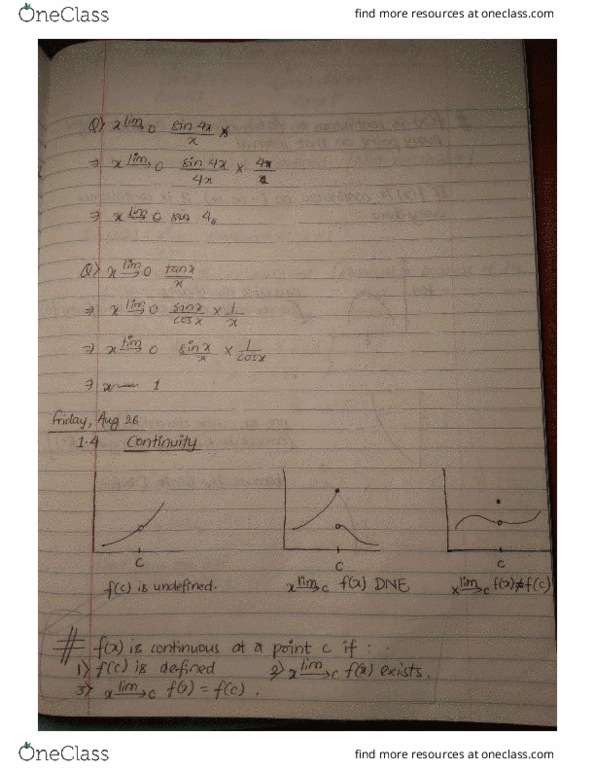 OneClass
find more resources at oneclass.com
Q) x lim→0 sin 4x / x
⇒ x lim→0 sin 4x / 4x × 4x /
⇒ x lim→0 4,,
Q) x lim→0 tan x / x
⇒ x lim→0 sin x / cos x × 1 / x
⇒ x lim→0 sin x / x × 1 / cos x
⇒ 1
Friday, Aug 26
1.4 Continuity
C C C
f(c) is undefined. x lim→c f(x) DNE x lim→c f(x) ≠ f(c)
# f(x) is continuous at a point c if :
1) f(c) is defined 2) x lim→c f(x) exists.
3) x lim→c f(x) = f(c) .
OneClass
find more resources at oneclass.com